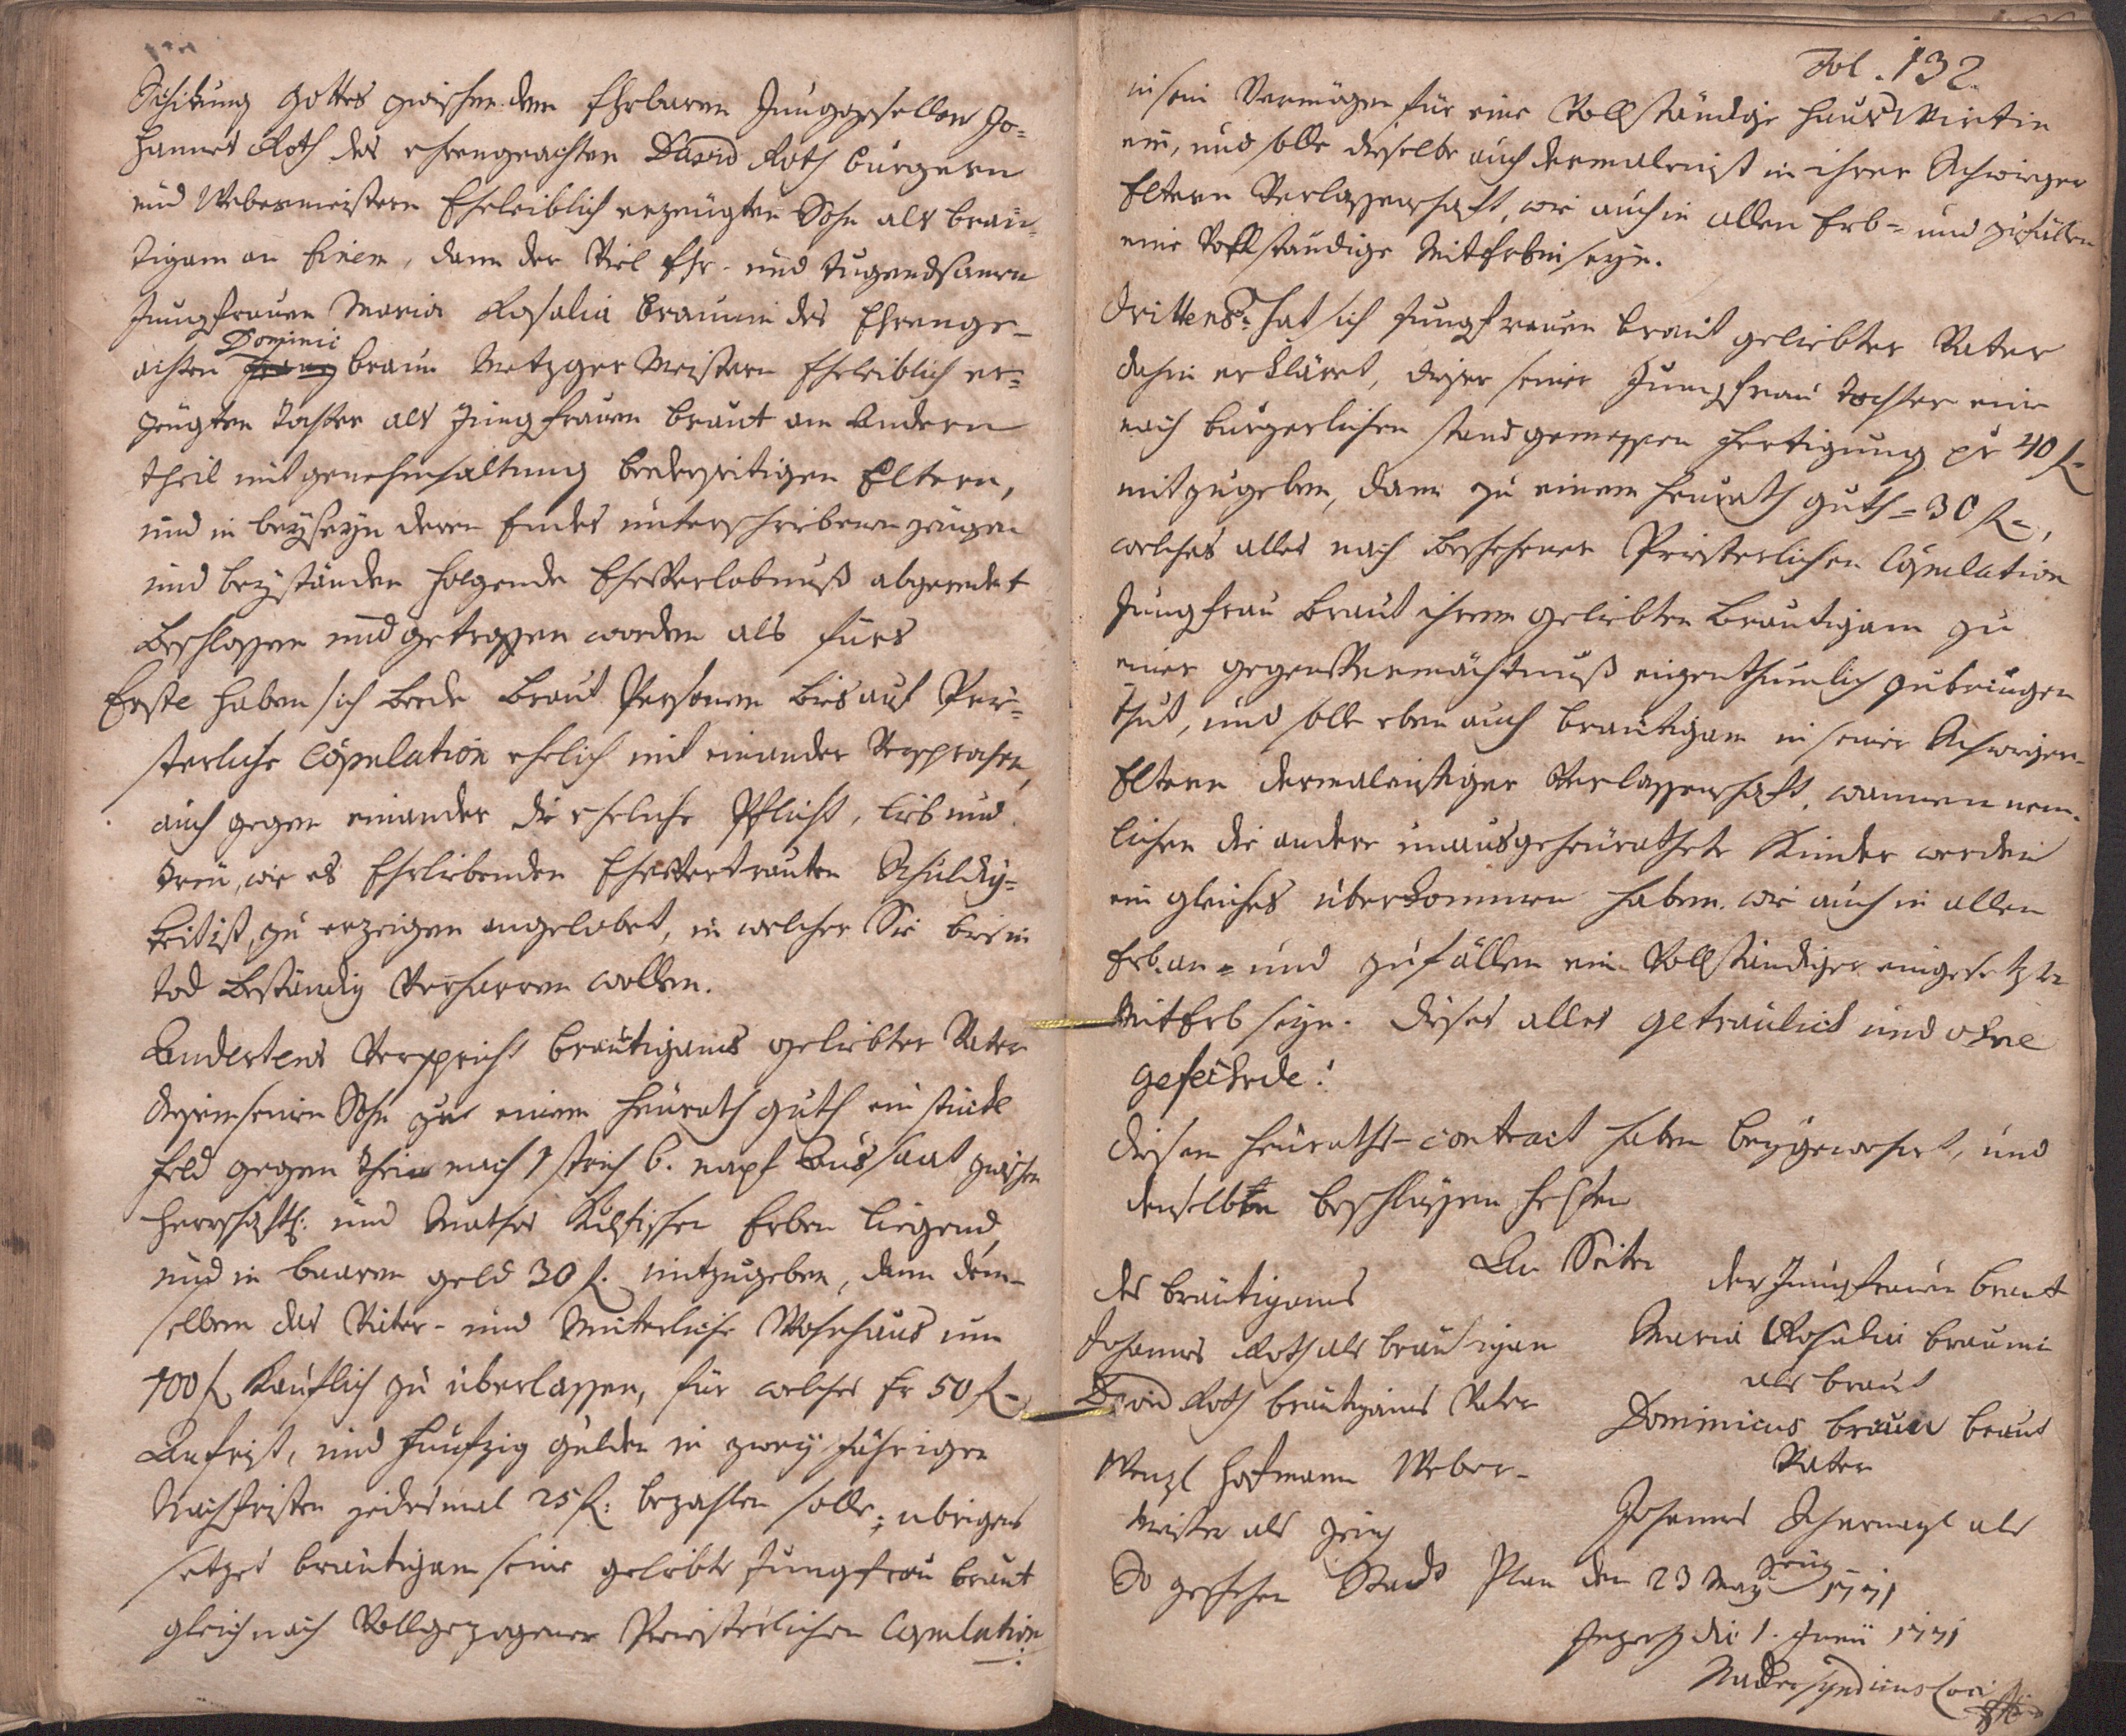 Schikung Gottes zwischen dem Ehrbaren Junggesellen Jo=
hannes Roth des ehrengeachten David Roth burgern
und Webermeistern Eheleiblich erzeugten Sohn als bräu=
tigam an Einem, dann der Viel Ehr- und tugendsamen
Jungfrauen Maria Rosalia Braunin des Ehrenge-
Dominici
achten braun Metzger Meistern Eheleiblich er=
zeugten Tochter als Jungfrauen braut am Andern
theil mit genehmhaltung beederseitigen Eltern,
und in beyseyn deren Endes unterschriebenen zeugen
und beyständen folgende EheVerlobnuß abgeredet
beschlossen und getroffen worden als fürs
Erste haben sich beede braut Persohnen bis auf Prie=
sterliche Copulation ehelich mit einander Versprochen,
auch gegen einander die eheliche Pflicht, Lieb und
treu, wie es Ehrliebenden EheVertrauten Schuldig=
keit ist, zu erzeigen angelobet, in welcher Sie bis in
tod beständig Verharren wollen.
Andertens Verspricht bräutigams geliebter Vater
diesem seinem Sohn zu einem Heurath guth ein stückl
feld gegen Thein nach 1 strich 6. napf Aussaat zwischen
Herrschaftl: und Mathes Erben liegend,
und in baaren geld 30 f. mitzugeben, dann dem-
selben das Väter- und Mütterliche Wohnhaus um
100 f. Käuflich zu überlassen, für welches Er 50 f.-
Anfrist, und funfzig gulden in zwey Jährigen
Nachfristen jedesmal 25 f: bezahlen solle; übrigens
setzet bräutigam seine geliebte Jungfrau braut
gleich nach Vollgezogener Priesterlichen Copulation
Fol. 132.
in sein Vermögen für eine Vollständige Haus Wirtin
ein, und solle dieselbe auch dermaleinst in ihrer Schwieger
Eltern Verlassenschaft, wie auch in allen Erb- und zufällen
eine Vollständige MitErbin seyn.
Drittens: hat sich Jungfrauen braut geliebter Vater
dahin erkläret, dieser seiner Jungfrau Tochter eine
nach burgerlichen stand gemessen Fertigung pr 40 f-
mitzugeben, dann zu einem Heurath guth = 30 f-,
welches alles nach beschehener Priesterlichen Copulation
Jungfrau braut ihrem geliebten bräutigam zu
einer gegenVermächtnuß eigenthumlich zubringen
thut, und solle eben auch bräutigam in seiner Schwieger-
Eltern dermaleinstiger Verlassenschaft, wannen nem-
lichen die andere unausgeheurathete Kinder werden
ein gleiches überkommen haben. wie auch in allen
Erb. an- und zufällen ein Vollständiger eingesetzter
MitErb seyn. dieses alles getreulich und ohne
gefährde!
diesem Heuraths-contract haben beygewohnet, und
denselbten beschlüssen helfen
An Seiten
des bräutigams
der Jungfrauen braut
Johannes Roth als bräutigam
Maria Rosalia braunin
als braut
David Roth bräutigams Vater
Dominicus braun braut
Vater
Wenzl Hofmann Weber-
Meister als zeug
Johannes als
zeug
So geschehen Stadt Plan den 23 May 1771
die 1. Junii 1771